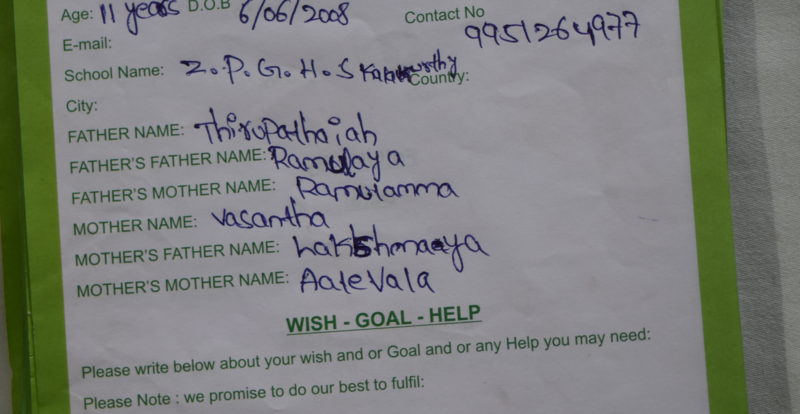 Age: 11 years D.O.B 6/06/2008 Contact No 9951264977
E-mail:
School Name: Z.P.G.H.S Country:
City:
FATHER NAME: Thirupathaiah
FATHER'S FATHER NAME: Ramulaya
FATHER'S MOTHER NAME: Ramulamma
MOTHER NAME: Vasantha
MOTHER'S FATHER NAME: Lakshmaaya
MOTHER'S MOTHER NAME: AaleVala
WISH - GOAL - HELP
Please write below about your wish and or Goal and or any Help you may need:
Please Note : we promise to do our best to fulfil: